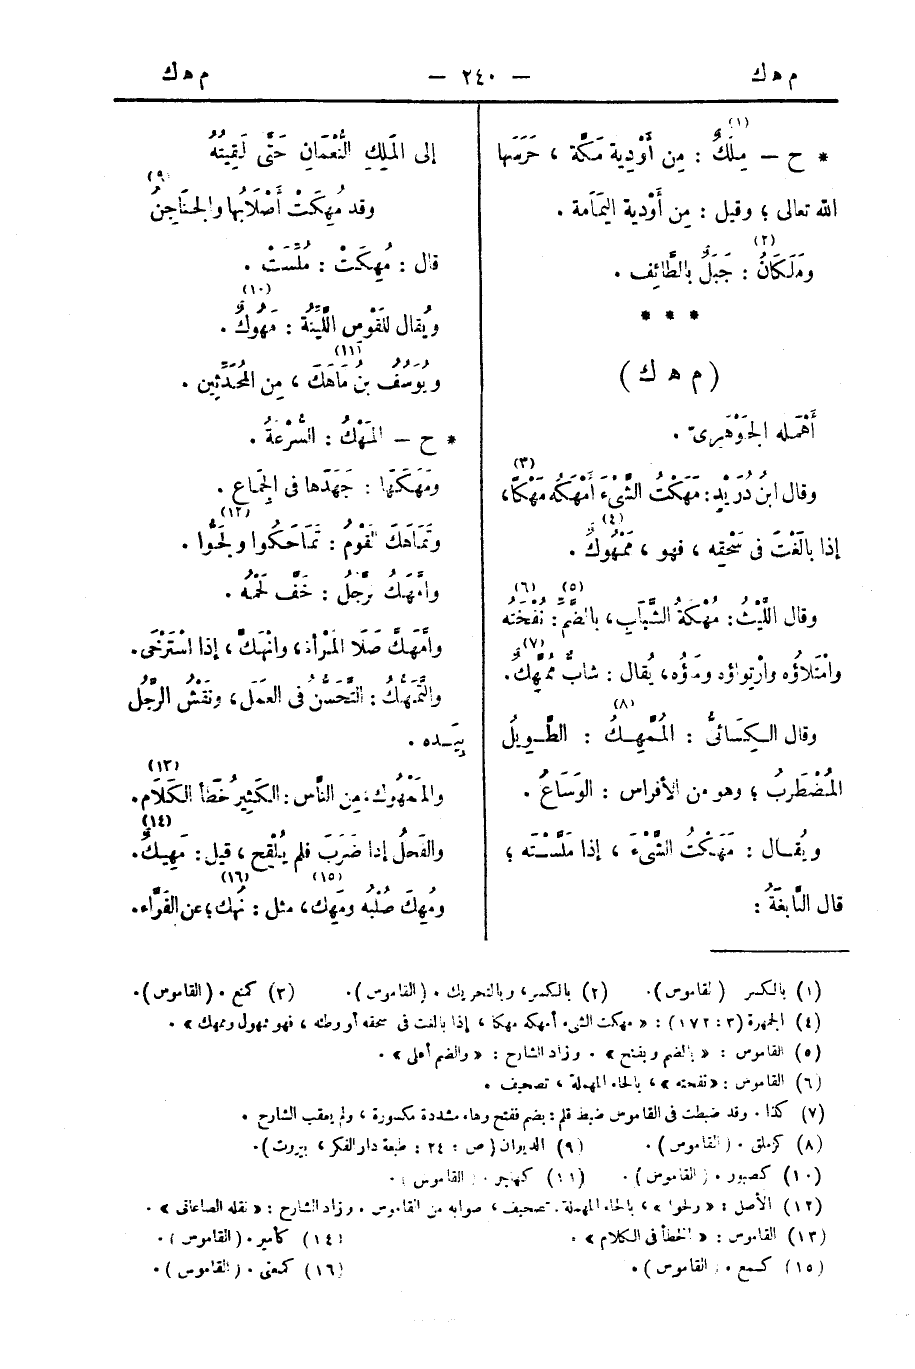 م هـ ك
— ٢٤٠ —
م هـ ك
* ح — مِلْكٌ (١) : مِن أَوْدِية مَكَّة ، حَرَسَها
الله تعالى ؛ وقيل : مِن أَوْدِية اليَمَامَة .
ومَلَكَانُ (٢) : جَبَلٌ بالطَّائِف .
* * *
( م هـ ك )
أَهْمَله الجَوْهَرِىّ .
وقال ابنُ دُرَيْدٍ : مَهَكْتُ الشَّىْءَ أَمْهَكُه مَهْكًا (٣)،
إذا بالَغْتَ فى سَحْقِه ، فهو ، مَمْهُوكٌ (٤) .
وقال اللَّيْثُ : مُهْكَةُ الشَّبَابِ ، بالضَّمِّ (٥) : نُفْخَتُه (٦)
وامْتِلاؤُه وارْتِواؤُه وماؤُه ، يُقال : شابٌّ مُمَّهِكٌ (٧) .
وقال الـكِسَائىُّ : المُمَّهِـكُ (٨) : الطَّـوِيلُ
المُضْطَرِبُ ؛ وهو من الأفراس : الوَسَاعُ .
ويُقـال : مَهَكْتُ الشَّىْءَ ، إذا مَلَّسْتَه ؛
قال النَّابِغَةُ :
إلى المَلِكِ النُّعْمَانِ حَتَّى لَقِيتُهُ
وقد مُهِكَتْ أَصْلَابُها والجَنَاجِنُ (٩)
قال : مُهِكَتْ : مُلِّسَتْ .
ويُقال للقَوْسِ اللَّيِّنَة : مَهُوكٌ (١٠) .
ويُوسُفُ بنُ مَاهَكَ (١١) ، مِن المُحَدِّثِين .
* ح — المَهْكُ : السُّرْعَةُ .
ومَهَكَها : جَهَدَها فى الجِمَاعِ .
وتَمَاهَكَ القَوْمُ : تَمَاحَكُوا ولَجُّوا (١٢) .
وامَّهَكَ الرَّجُلُ : خَفَّ لَحْمُهُ .
وامَّهَكَّ صَلَا المَرْأة ، وانْهَكَّ ، إذا اسْتَرْخَى .
والتَّمَهُّكُ : التَّحَسُّنُ فى العَمَلِ ، ونَفْشُ الرَّجُل
بِيَـده .
والمَمْهُوك : مِن النَّاس : الكَثِيرُ خَطَأ الكَلَام (١٣) .
والفَحْلُ إذا ضَرَبَ فلم يُلْقِح ، قيل : مَهِيكٌ (١٤) .
ومُهِكَ صُلْبُه ومَهِك (١٥) ، مثل : نُهِك (١٦) ؛ عن الفَرَّاء .
(١) بالكسر (القاموس) . (٢) بالكسر ، وبالتحريك . (القاموس) . (٣) كمنع . (القاموس) .
(٤) الجمهرة (٣ : ١٧٢) : « مهكت الشىء أمهكه مهكا ، إذا بالغت فى سحقه أو وطئه ، فهو مهول وممهك » .
(٥) القاموس : « بالضم ويفتح » . وزاد الشارح : « والضم أعلى » .
(٦) القاموس : « نفحته » ، بالحاء المهملة ، تصحيف .
(٧) كذا . وقد ضبطت فى القاموس ضبط قلم : بضم ففتح وهاء مشددة مكسورة ، ولم يعقب الشارح .
(٨) كزملق . (القاموس) . (٩) الديوان (ص : ٢٤ : طبعة دار الفكر ، بيروت) .
(١٠) كصبور . (القاموس) . (١١) كهاجر . (القاموس) .
(١٢) الأصل : « ولحوا » ، بالحاء المهملة . تصحيف ، صوابه من القاموس . وزاد الشارح : « نقله الصاغانى » .
(١٣) القاموس : « الخطأ فى الكلام » . (١٤) كأمير . (القاموس) .
(١٥) كسمع . (القاموس) . (١٦) كعنى . (القاموس) .